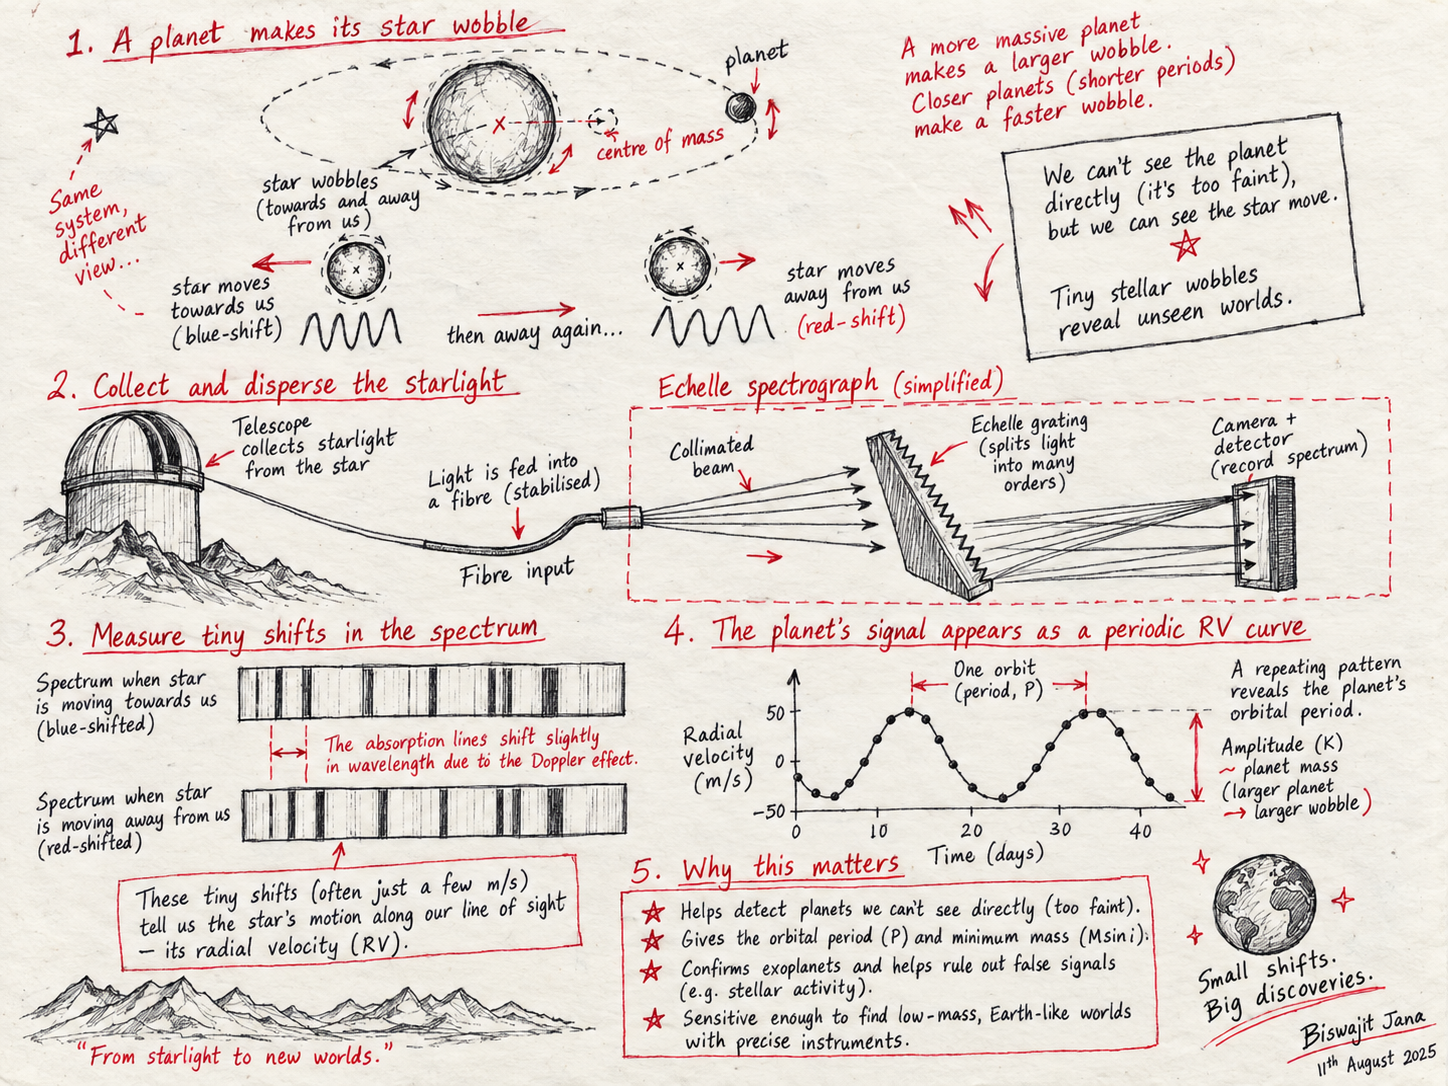 1. A planet makes its star wobble
planet
centre of mass
star wobbles
(towards and away
from us)
A more massive planet
makes a larger wobble.
Closer planets (shorter periods)
make a faster wobble.
Same
system,
different
view...
star moves
towards us
(blue-shift)
then away again...
star moves
away from us
(red-shift)
We can't see the planet
directly (it's too faint),
but we can see the star move.
Tiny stellar wobbles
reveal unseen worlds.
2. Collect and disperse the starlight
Telescope
collects starlight
from the star
Light is fed into
a fibre (stabilised)
Fibre input
Echelle spectrograph (simplified)
Collimated
beam
Echelle grating
(splits light
into many
orders)
Camera +
detector
(record spectrum)
3. Measure tiny shifts in the spectrum
Spectrum when star
is moving towards us
(blue-shifted)
The absorption lines shift slightly
in wavelength due to the Doppler effect.
Spectrum when star
is moving away from us
(red-shifted)
These tiny shifts (often just a few m/s)
tell us the star's motion along our line of sight
— its radial velocity (RV).
"From starlight to new worlds."
4. The planet's signal appears as a periodic RV curve
One orbit
(period, P)
Radial
velocity
(m/s)
50
0
-50
0 10 20 30 40
Time (days)
A repeating pattern
reveals the planet's
orbital period.
Amplitude (K)
~ planet mass
(larger planet
→ larger wobble)
5. Why this matters
Helps detect planets we can't see directly (too faint).
Gives the orbital period (P) and minimum mass (Msini).
Confirms exoplanets and helps rule out false signals
(e.g. stellar activity).
Sensitive enough to find low-mass, Earth-like worlds
with precise instruments.
Small shifts.
Big discoveries.
Biswajit Jana
11th August 2025